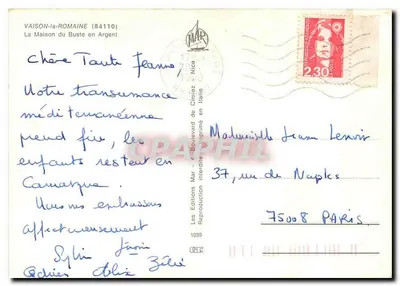 VAISON-la-ROMAINE (84110)
La Maison du Buste en Argent
Chère Tante Jeanne,
Notre transumance
méditerranéenne
prend fin, les
enfants restent en
Camargue.
Nous vous embrassons
affectueusement
Sylvie
Cédric Alix Zélie
MAR
Les Editions Mar - Boulevard de Cimiez - Nice
Reproduction interdite Imprimé en Italie
1039
2,30
Mademoiselle Jeanne Lenoir
37, rue de Naples
75008 PARIS